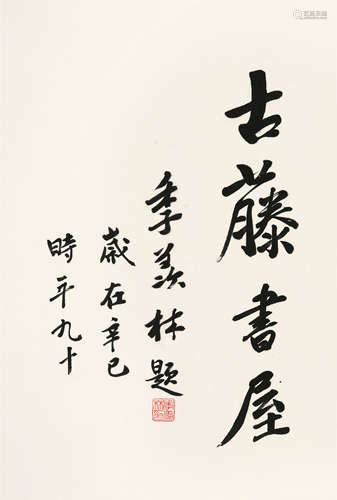 古藤書屋
季羡林題
歲在辛巳
時年九十